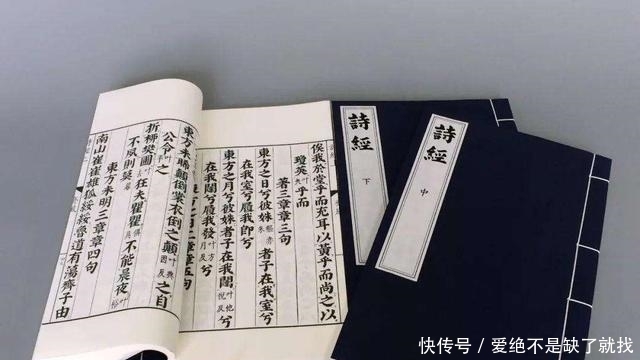 俟我於堂乎而充耳以黃乎而尚之以
瓊英乎而
著三章章三句
東方之日兮彼姝者子在我室兮
在我室兮履我即兮
東方之月兮彼姝者子在我闥叶他悅反兮
在我闥兮履我發叶方月反兮
二章章五句
東方未晞顛倒裳衣倒之顛叶典因反之自
公令之
折柳樊圃狂夫瞿瞿不能晨夜
不夙則莫
東方未明三章章四句
南山崔崔雄狐綏綏魯道有蕩齊子由
詩經
下
詩經
中
快传号 / 爱绝不是缺了就找